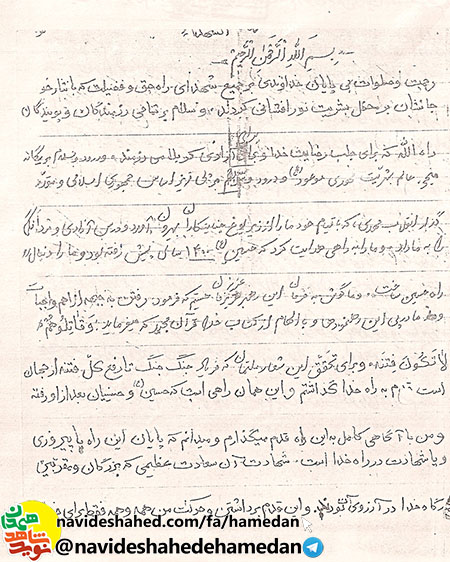 بسم الله الرحمن الرحیم
رحمت و صلوات بی پایان خداوندی بر جمیع شهدای راه حق و فضیلت که با نثار خو
جانشان بر محفل بشریت نور افشانی کردند و سلام بر تمامی رزمندگان و پویندگان
راه الله که برای جلب رضایت خدا و برای آزادی کربلا می رزمند و درود و سلام بر یگانه
منجی عالم بشریت مهدی موعود (عج) و درود و سلام بر جمهوری اسلامی و
گذار انقلاب مهدی، که با قیام خود ما را از زیر یوغ جنایتکاران بیرون آورد و درس آزادی و مردانگی
را به ما داد و ما را به راهی هدایت کرد که حسین (ع) ۱۴۰۰ سال پیش رفته بود و ما را دنبال
راه حسین ساخت. و ما گوش به فرمان این رهبر بزرگمان هستیم که فرمود رفتن به جبهه از اهم واجبا
و ما در پی این رهنمودها و با الهام از کتاب خدا قرآن مجید که میفرماید: و قاتلوهم
لا تکون فتنه و برای تحقق این شعار ملتمان که فریاد جنگ جنگ تا رفع کل فتنه از جهان
است قدم به راه خدا گذاشتم و این همان راهی است که حسین (ع) و حسینیان بعد از او رفته
و من با آگاهی کامل به این راه قدم میگذارم و میدانم که پایان این راه یا پیروزی
و یا شهادت در راه خدا است. شهادت آن سعادت عظیمی که بزرگان و مقربین
گاه خدا در آرزوی آن بودند. و این قدم برداشتن و حرکت من همه و همه فقط برای
نوید شاهد همدان
navideshahed.com/fa/hamedan
@navideshahedehamedan